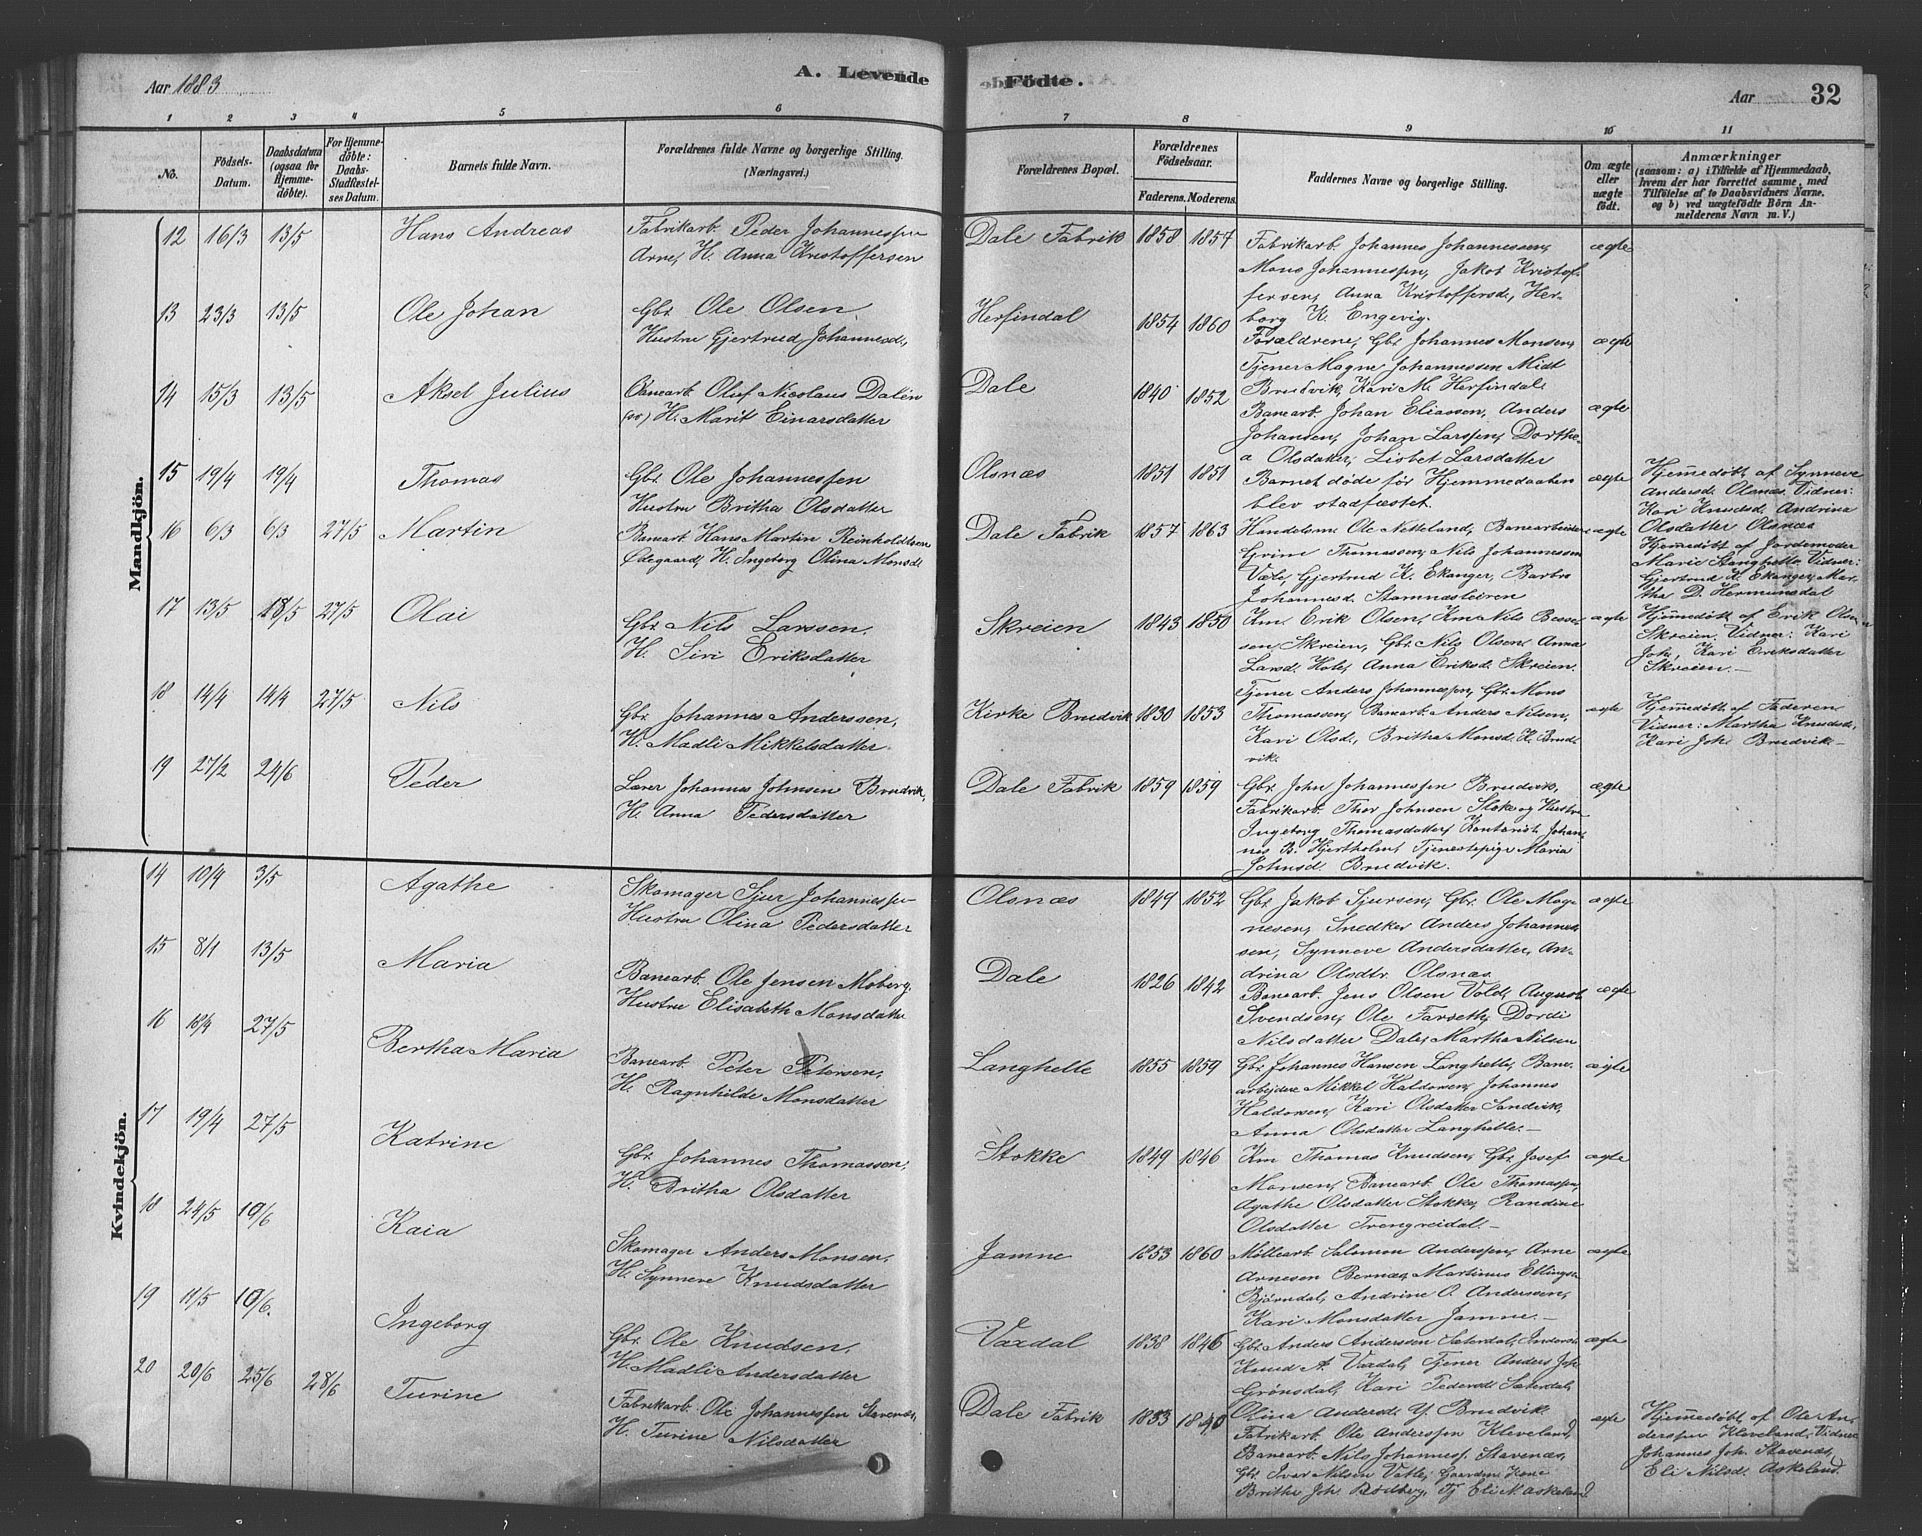 Aar 1883
A. Levende
Födte.
Aar
32
1 2 3 4 5 6 7 8 9 10 11
No.
Födsels-
Datum.
Daabsdatum
(ogsaa for
Hjemme-
döbte).
For Hjemme-
döbte:
Daabs-
Stadfæstel-
ses Datum.
Barnets fulde Navn.
Forældrenes fulde Navne og borgerlige Stilling
(Næringsvei.)
Forældrenes Bopæl.
Forældrenes
Födselsaar.
Faderens. Moderens.
Faddernes Navne og borgerlige Stilling.
Om ægte
eller
uægte
födt.
Anmærkninger
(saasom: a) i Tilfælde af Hjemmedaab,
hvem der har forrettet samme, med
Tilföielse af to Daabsvidners Navne.
og b) ved uægtefödte Börn An-
melderens Navn m. V.)
Mandkjön.
12 16/3 13/5 Hans Andreas
Fabrikarb. Peder Johannessen
Arne, H. Anna Kristoffersen
Dale Fabrik 1858 1857
Fabrikarb. Johannes Johannessen,
Mons Johannessen, Jakob Kristof-
fersen, Anna Kristoffersd., Her-
borg K. Engevig.
ægte
13 23/3 13/5 Ole Johan
Gbr. Ole Olsen
Hustru Gjertrud Johannesd.,
Herfindal 1854 1860
Forældrene, Gbr. Johannes Monsen,
Tjener Magne Johannessen Midt
Brudvik, Kari M. Herfindal
ægte
14 15/3 13/5 Aksel Julius
Banearb. Oluf Nicolaus Dalen
H. Marit Einarsdatter
Dale 1840 1852
Banearb. Johan Eliassen, Anders
Johansen, Johan Larssen, Dorthe-
a Olsdatter, Lisbet Larsdatter
ægte
15 19/4 19/4 Thomas
Gbr. Ole Johannessen
Hustru Britha Olsdatter
Olsnæs 1851 1851
Barnet döde för Hjemmedaaben
blev stadfæstet.
ægte
Hjemmedöbt af Synneve
Andersd. Olsnæs. Vidner:
Kari Knudsd., Andrina
Olsdatter Olsnæs
16 6/3 6/3 27/5 Martin
Banearb. Hans Martin Reinholdtsen
Ødegaard, H. Ingeborg Olina Monsd.
Dale Fabrik 1857 1863
Handelsm. Ole Netteland, Banearbeider
Grim Thomassen, Nils Johannessen
Væle, Gjertrud K. Ekanger, Barbro
Johannesd. Stamnæsteiren
ægte
Hjemmedöbt af Jordemoder
Marie Stanghelle, Vidner:
Gjertrud K. Ekanger, Mar-
tha D. Hermundsdal
17 13/5 18/5 27/5 Olai
Gbr. Nils Larssen,
H. Siri Eriksdatter
Skreien 1843 1850
Km. Erik Olsen, Km Nils Bessen-
sen Skreien, Gbr. Nils Olsen, Anna
Larsd. Hole, Anna Eriksd. Skreien.
ægte
Hjemmedöbt af Erik Olsen
Skreien. Vidner: Kari
Joh., Kari Eriksdatter
Skreien.
18 14/4 14/4 27/5 Nils
Gbr. Johannes Anderssen,
H. Madli Mikkelsdatter
Kirke Brudvik 1830 1853
Tjener Anders Johannessen, Gbr. Mons
Thomassen, Banearb. Anders Nilsen,
Kari Olsd., Britha Monsd. K. Brud-
vik.
ægte
Hjemmedöbt af Faderen
Vidner: Martha Knudsd.,
Kari Joh. Brudvik.
19 27/2 24/6 Peder
Lærer Johannes Johnsen Brudvik,
H. Anna Pedersdatter
Dale Fabrik 1859 1859
Gbr. John Johannessen Brudvik,
Fabrikarb. Thor Johnsen Stok og Hustru
Ingeborg Thomasdatter, Kontorist Johan-
nes B. Hjertholm, Tjenestepige Maria
Johnsd. Brudvik.
ægte
Kvindekjön.
14 10/4 3/5 Agathe
Skomager Sjur Johannessen
Hustru Olina Pedersdatter
Olsnæs 1849 1852
Gbr. Jakob Sjursen, Gbr. Ole Mag-
nesen, Snedker Anders Johannes-
sen, Synneve Andersdatter, An-
drina Olsdtr. Olsnæs.
ægte
15 8/1 13/5 Maria
Banearb. Ole Jensen Moberg,
Hustru Elisabeth Monsdatter
Dale 1826 1842
Banearb. Jens Olsen Vold, August
Svendsen, Ole Farseth, Dordi
Nilsdatter Dale, Martha Nilsen
ægte
16 18/4 27/5 Bertha Maria
Banearb. Peter Petersen,
H. Ragnhilde Monsdatter
Langhelle 1855 1859
Gbr. Johannes Hansen Langhelle, Bane-
arbejdere Mikkel Haldorsen, Johannes
Haldorsen, Kari Olsdatter Sandvik,
Anna Olsdatter Langhelle.
ægte
17 19/4 27/5 Katrine
Gbr. Johannes Thomassen,
H. Britha Olsdatter
Stokke 1849 1846
Km Thomas Knudsen, Gbr. Josef
Monsen, Banearb. Ole Thomassen,
Agathe Olsdatter Stokke, Randine
Olsdatter Trengreidal.
ægte
18 24/5 19/6 Kaia
Skomager Anders Monsen,
H. Synneve Knudsdatter
Jamne 1853 1860
Möllearb. Salomon Anderssen, Arne
Arnesen Bernæs, Martinus Ellings.
Bjørndal, Andrine O. Andersen,
Kari Monsdatter Jamne.
ægte
19 11/5 10/6. Ingeborg
Gbr. Ole Knudsen.
H. Madli Andersdatter
Vaxdal 1838 1846
Gbr. Anders Anderssen Sæterdal,
Knud A. Vaxdal, Tjener Anders Joh.
Grönsdal, Kari Pedersd. Sæterdal,
Olina Andersd. Y. Brudvik.
ægte
20 20/6 25/6 28/6 Turine
Fabrikarb. Ole Johannessen Stavenæs,
H. Turine Nilsdatter
Dale Fabrik 1833 1840
Fabrikarb. Ole Anderssen Kleveland,
Banearb. Nils Johanness. Stavenæs,
Gbr. Ivar Nilsen Vatle, Gaardm. Kone
Britha Joh. Rödberg, Tj. Eli N. Askeland.
ægte
Hjemmedöbt af Ole An-
derssen Kleveland, Vidner
Johannes Joh. Stavenæs,
Eli Nilsd. Askeland.